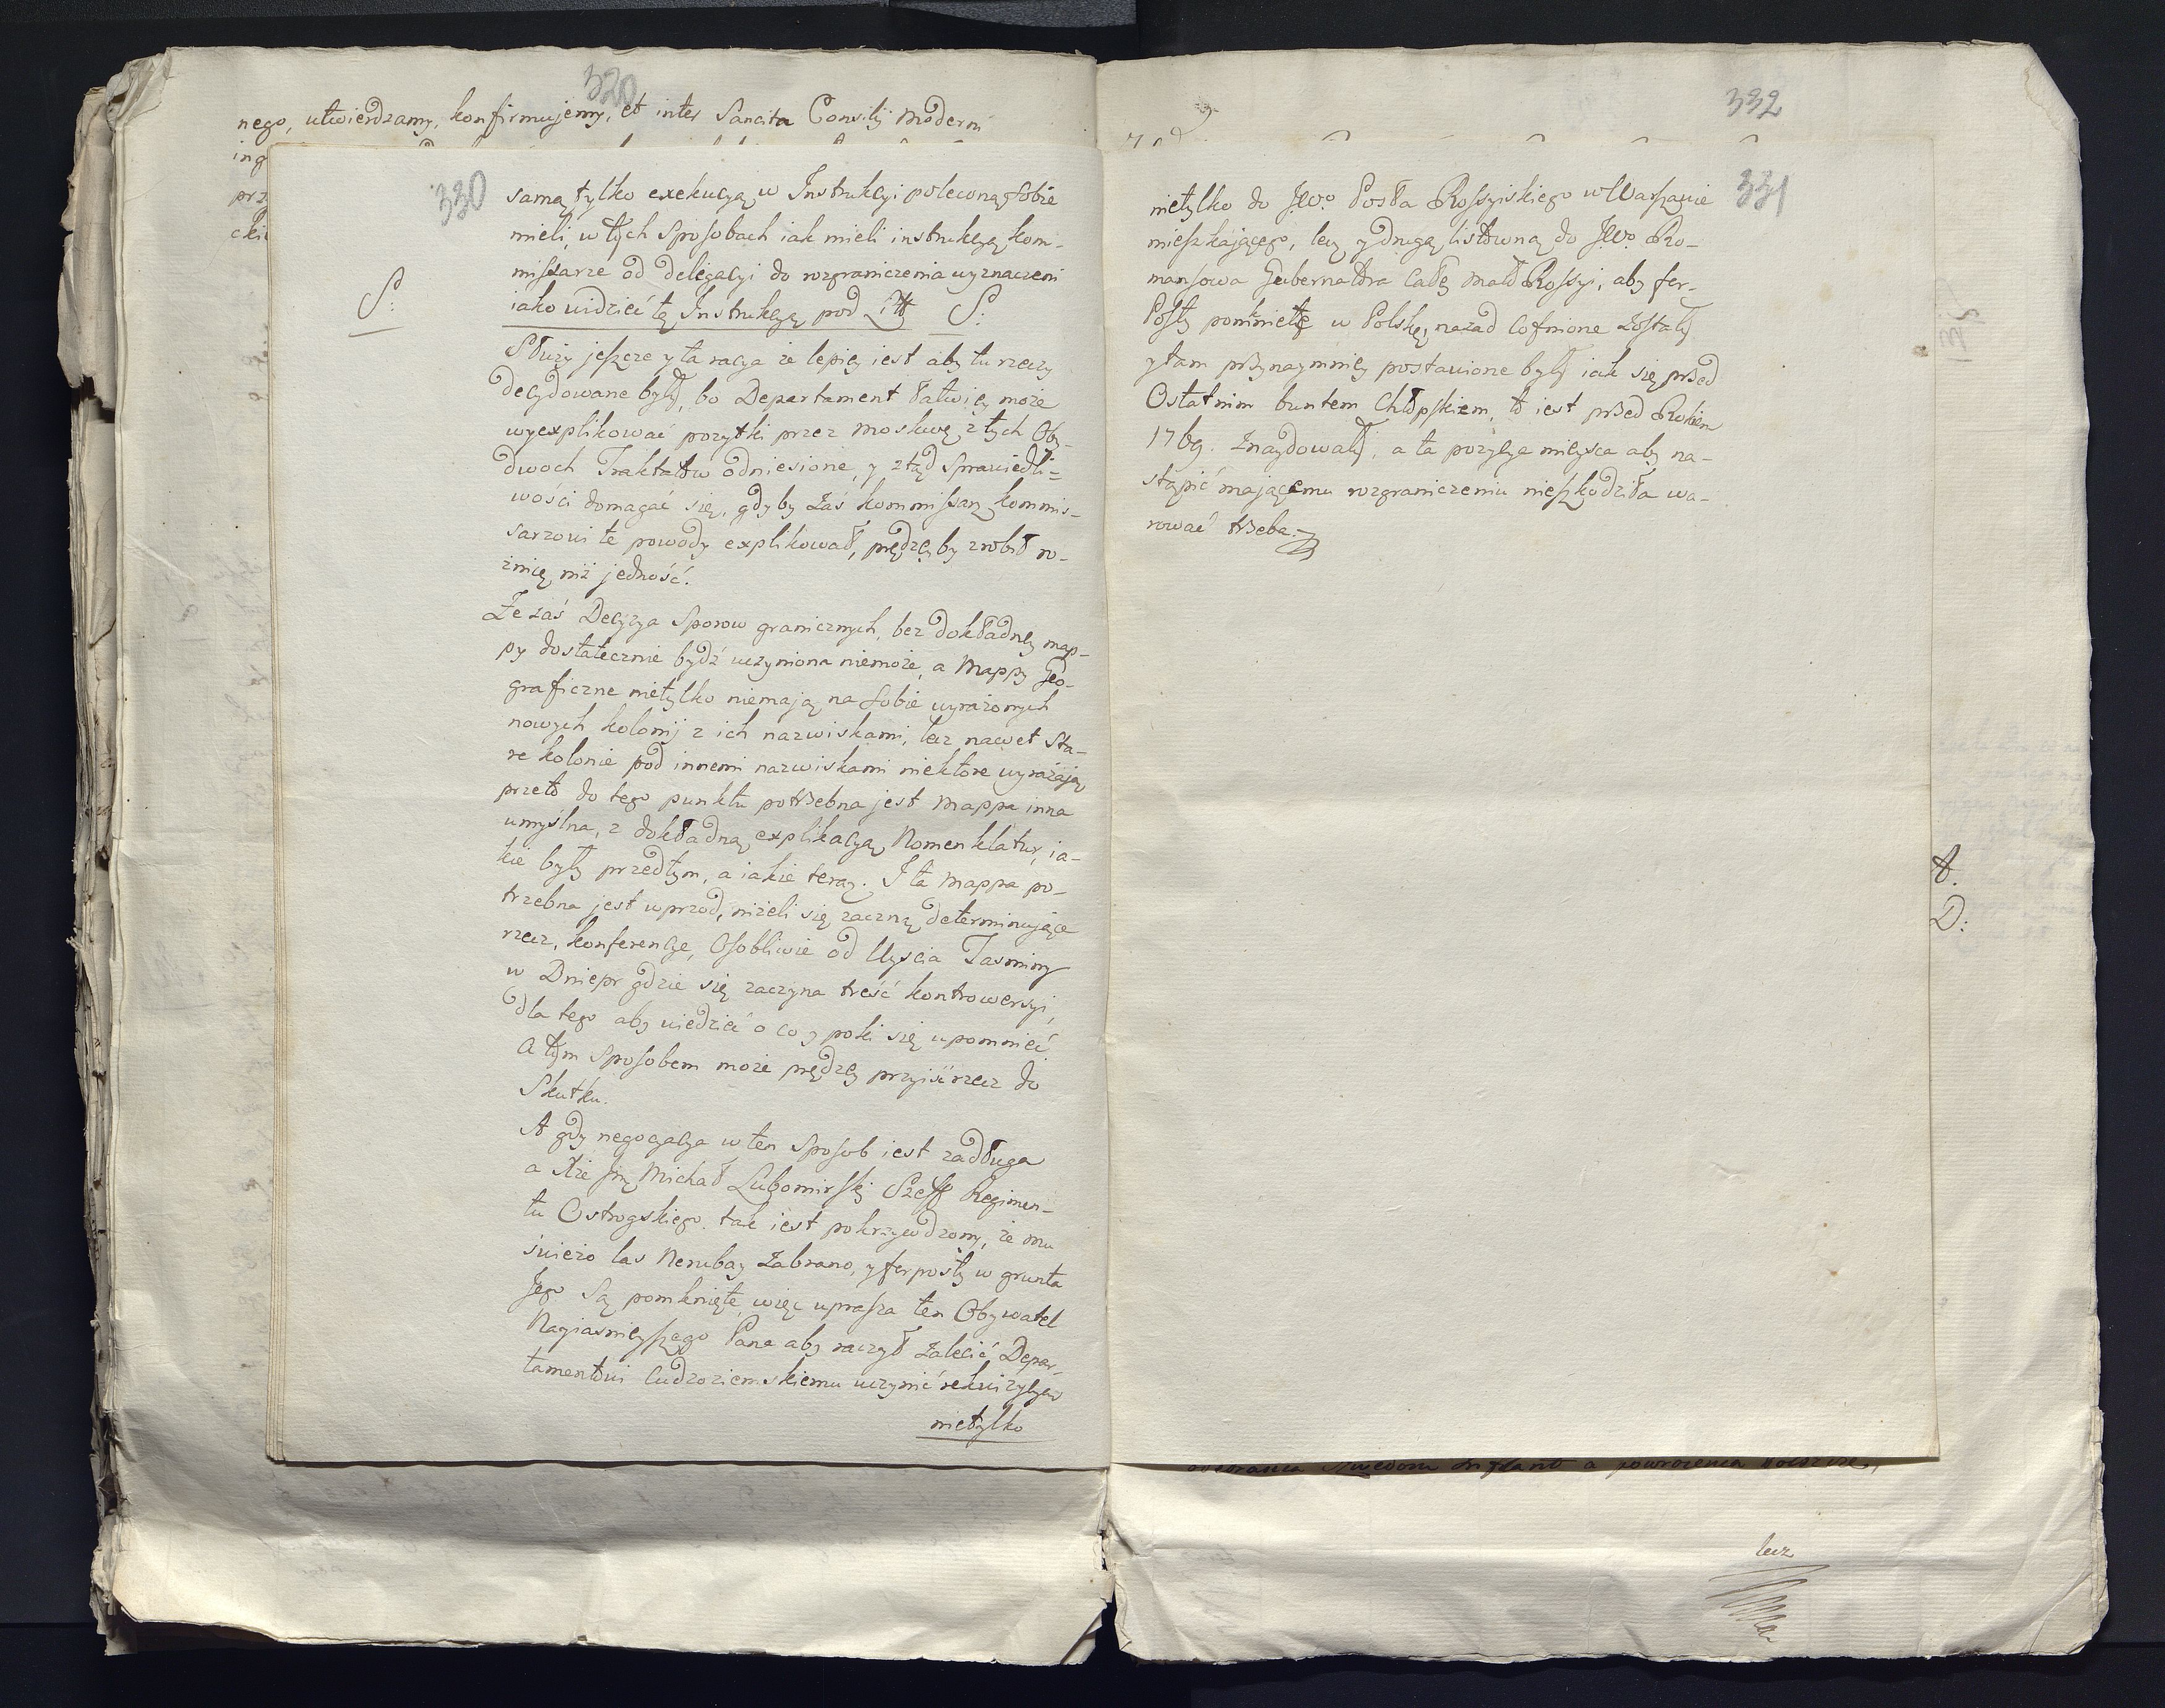 320
nego, utwierdzamy, konfirmujemy, et inter Sancita Consilij moderni
ing
prz
cki
330
samą tylko exekucyą w Instrukcyi poleconą sobie
mieli, w tych sposobach iak mieli instrukcyą kom-
missarze od delegacyi do rozgraniczenia wyznaczeni
iako widzieć tę Instrukcyą pod Litt S:
S:
Służy jeszcze y ta racya że lepiey iest aby tu rzeczy
decydowane były, bo Departament łatwiey może
wyexplikować pozytki przez Moskwę z tych Oby-
dwoch Traktatow odniesione, y ztąd sprawiedli-
wości domagać się, gdyby zaś kommissarz kommis-
sarzowi te powody explikował, prędzey by zrobił ro-
żnicę niż jedność.
Że zaś Decyzya Sporow granicznych, bez dokładney map-
py dostatecznie bydź uczyniona niemoże, a Mappy Geo-
graficzne nietylko niemaią na sobie wyrażonych
nowych kolonij z ich nazwiskami, lecz nawet sta-
re kolonie pod innemi nazwiskami niektore wyrażaią
przeto do tego punktu potrzebna jest mappa inna
umyślna, z dokładną explikacyą Nomenklatur, ia-
kie były przedtym, a iakie teraz. I ta mappa po-
trzebna jest wprzod, niżeli się zaczną determinujące
rzecz, konferencye, Osobliwie od Uyscia Tasminy
w Dniepr gdzie się zaczyna treść kontrowersyi,
dla tego aby wiedzieć o co y poki się upomnieć
A tym sposobem może prędzey przyiść rzecz do
Skutku.
A gdy negocyacya w ten sposob iest zadługa
a Xże Jmć Michał Lubomirski Szeff Regimen-
tu Ostrogskiego tak iest pokrzywdzony, że mu
świeżo las Nerubay zabrano, y ferposty w grunta
Jego są pomknięte, więc uprasza ten Obywatel
Nayiasnieyszego Pana aby raczył zalecić Depar-
tamentowi Cudzoziemskiemu uczynić rekwizycyą
nietylko
332
331
nietylko do JWo Posła Rossyiskiego w Warszawie
mieszkającego, lecz y drugą listowną do JWo Ro-
mansowa Gubernatora całey mało Rossyi, aby fer-
Posty pomkniete w Polskę, nazad cofnione zostały
y tam przynaymniey postawione były iak się przed
Ostatnim buntem Chłopskiem, to iest przed Rokiem
1769. znaydowały, a ta pozycya mieysca aby na-
stąpić mającemu rozgraniczeniu nieszkodziła wa-
rować trzeba.
A.
D:
lecz